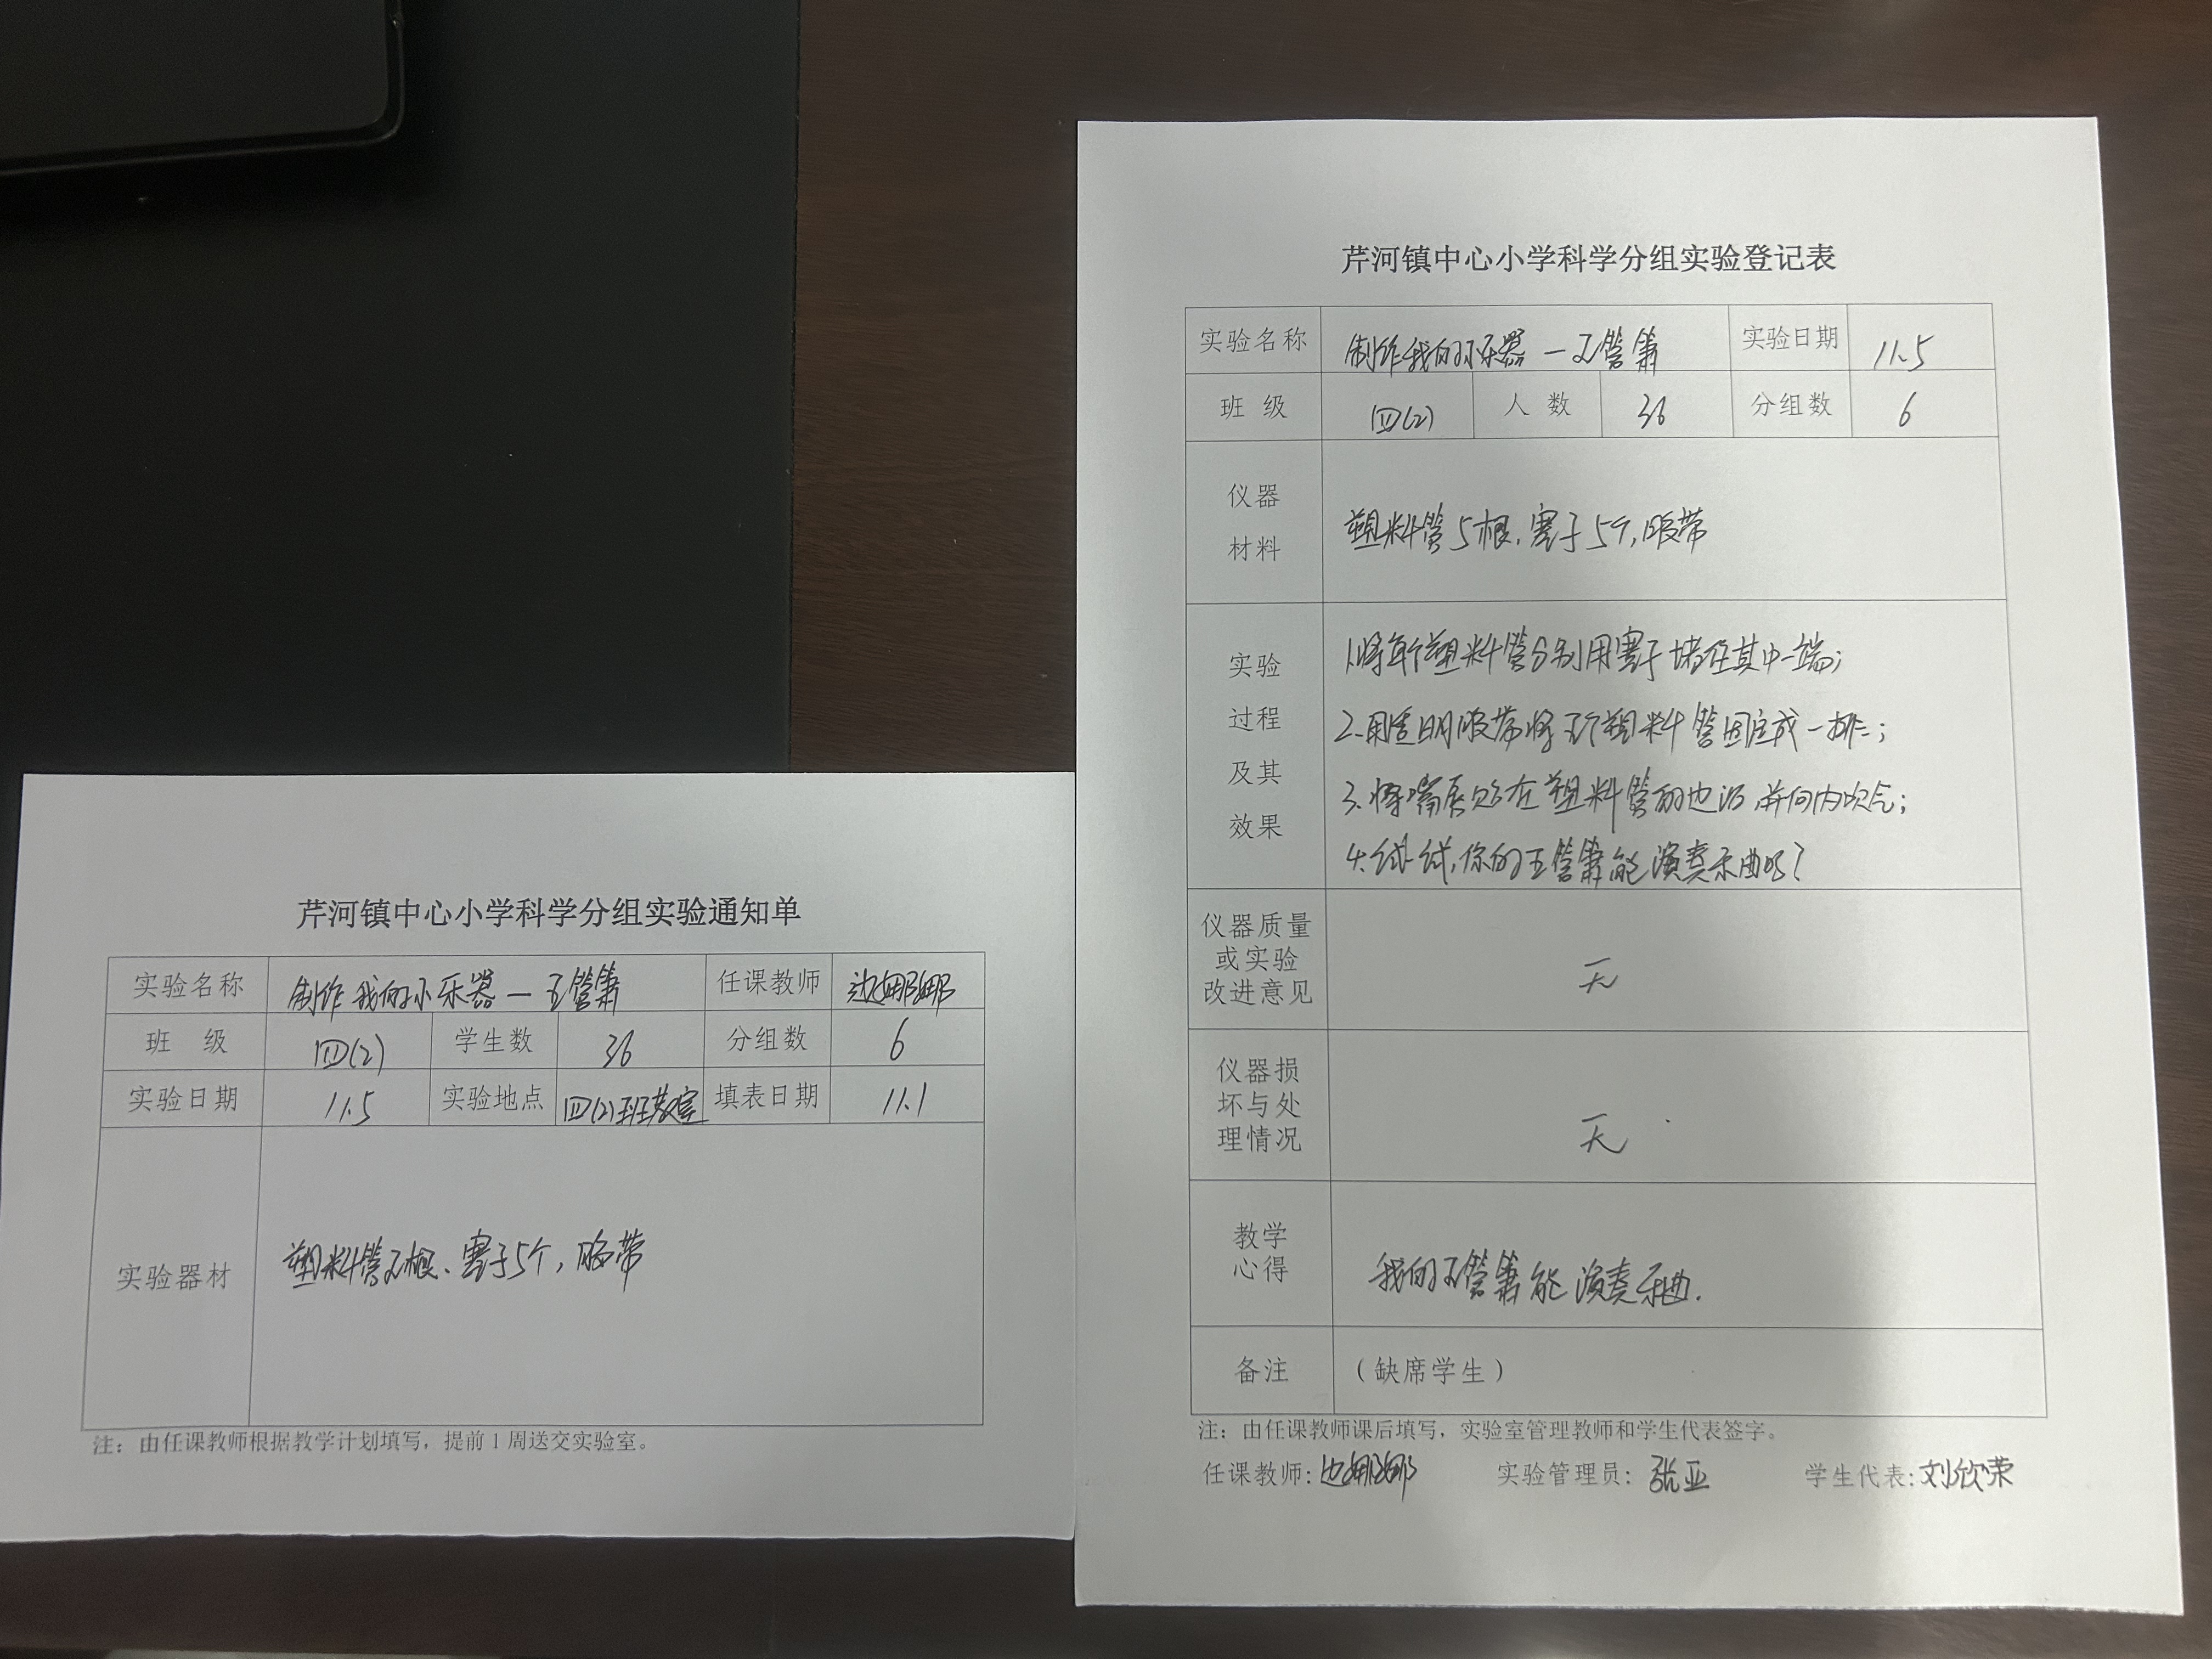 芹河镇中心小学科学分组实验通知单
实验名称 制作我的小乐器—五管箫 任课教师 边娜娜
班 级 四(2) 学生数 36 分组数 6
实验日期 11.5 实验地点 四(2)班教室 填表日期 11.1
实验器材 塑料管五根、塞子5个,胶带
注：由任课教师根据教学计划填写，提前1周送交实验室。
芹河镇中心小学科学分组实验登记表
实验名称 制作我的小乐器—五管箫 实验日期 11.5
班 级 四(2) 人 数 36 分组数 6
仪器
材料
塑料管5根,塞子5个,胶带
实验
过程
及其
效果
1.将每个塑料管分别用塞子堵住其中一端;
2.用透明胶带将五个塑料管固定成一排;
3.将嘴唇贴在塑料管的边沿并向内吹气;
4.试一试,你的五管箫能演奏乐曲吗?
仪器质量
或实验
改进意见
无
仪器损
坏与处
理情况
无
教学
心得
我的五管箫能演奏乐曲.
备注 （缺席学生）
注：由任课教师课后填写，实验室管理教师和学生代表签字。
任课教师:边娜娜 实验管理员: 张亚 学生代表:刘欣荣